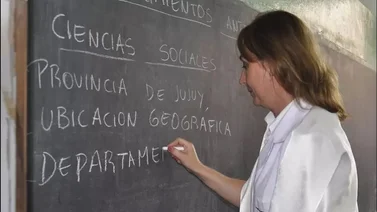 CIENCIAS SOCIALES
PROVINCIA DE JUJUY,
UBICACION GEOGRÁFICA
DEPARTAME